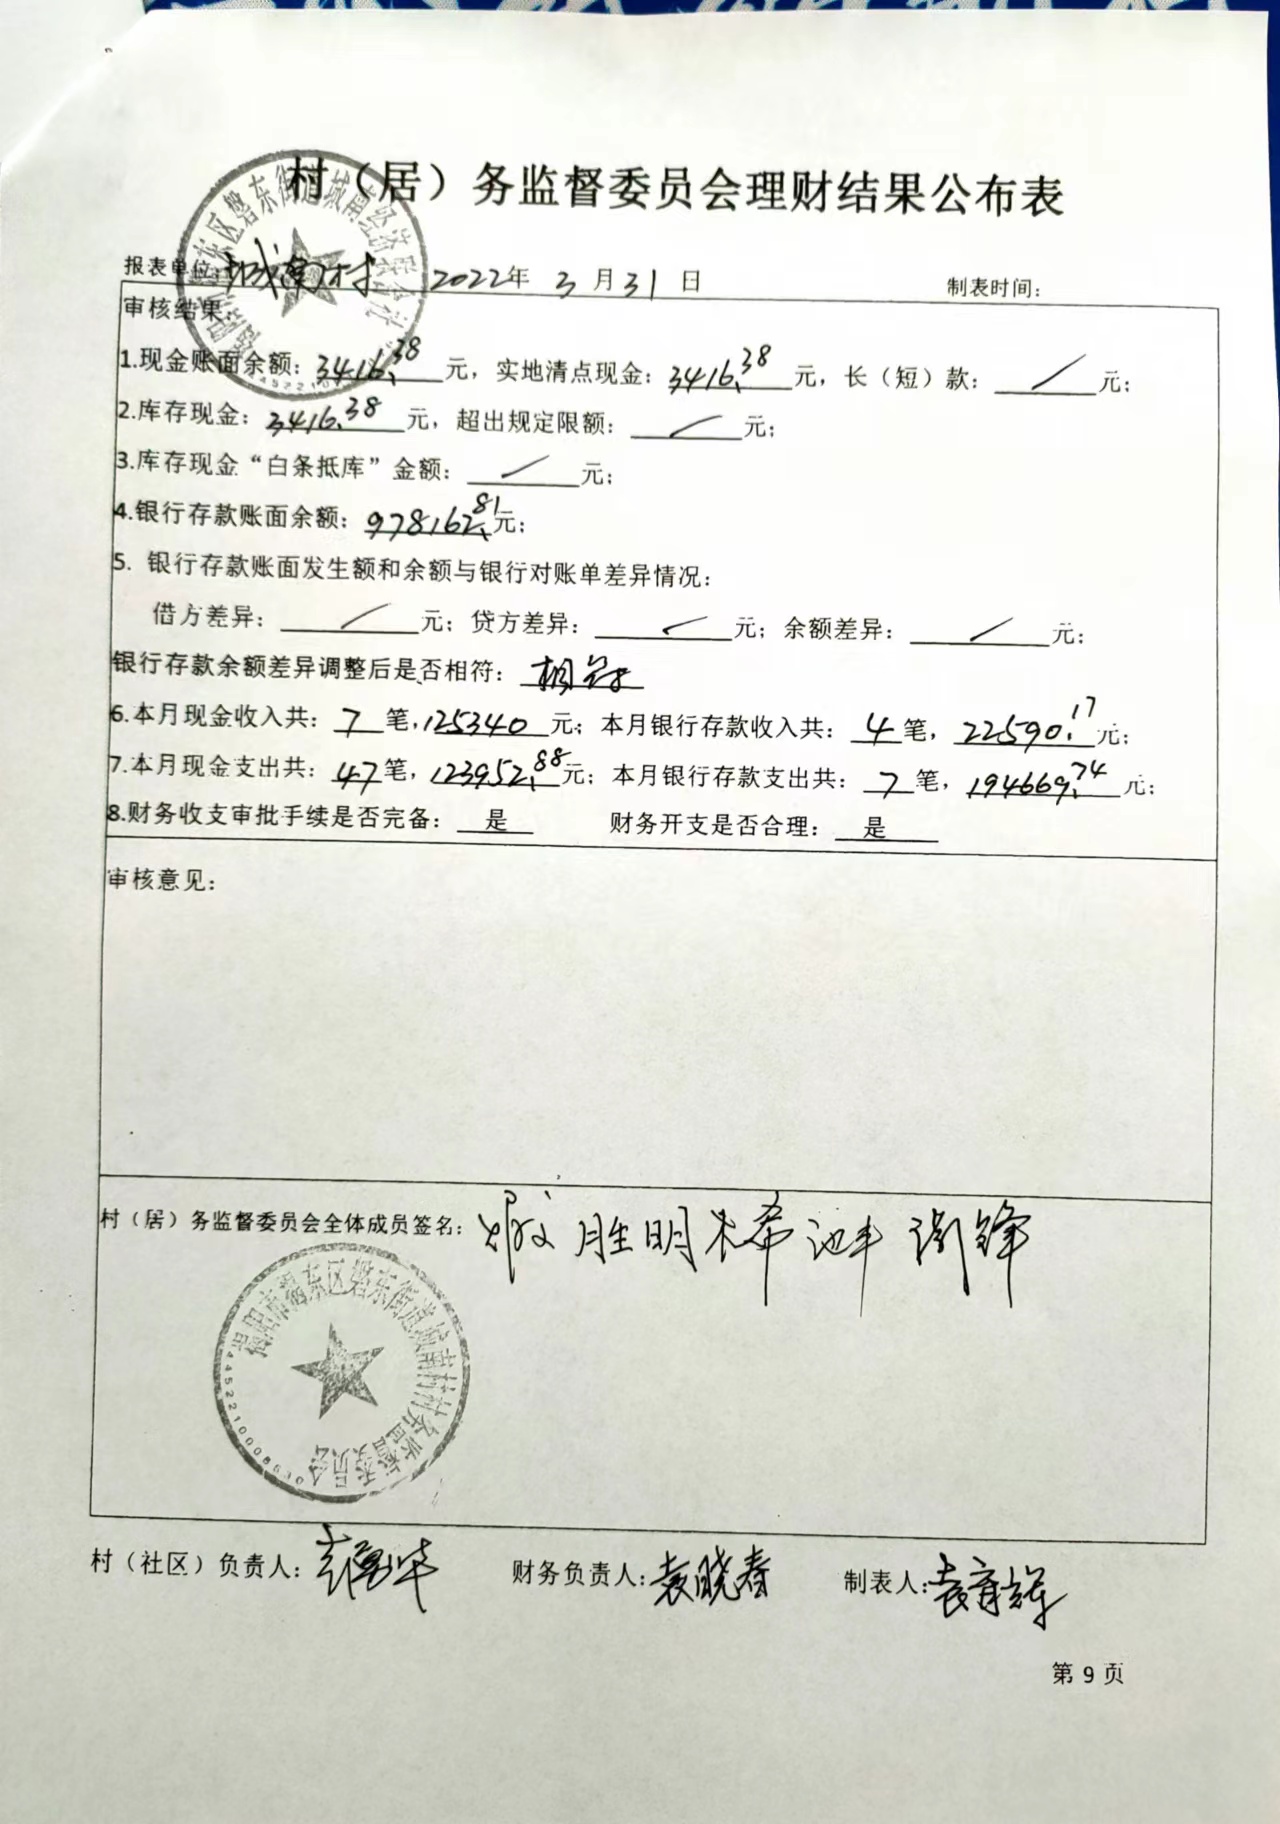 村（居）务监督委员会理财结果公布表
报表单位：城南村 2022年 3月31日 制表时间：
审核结果：
1.现金账面余额：3416.38元，实地清点现金：3416.38元，长（短）款：／元；
2.库存现金：3416.38元，超出规定限额：／元；
3.库存现金“白条抵库”金额：／元；
4.银行存款账面余额：978162.81元；
5. 银行存款账面发生额和余额与银行对账单差异情况：
借方差异：／元；贷方差异：／元；余额差异：／元；
银行存款余额差异调整后是否相符：相符
6.本月现金收入共：7笔，125340元；本月银行存款收入共：4笔，22590.17元；
7.本月现金支出共：47笔，123952.88元；本月银行存款支出共：7笔，194669.74元；
8.财务收支审批手续是否完备：是 财务开支是否合理：是
审核意见：
村（居）务监督委员会全体成员签名： 胜明
揭阳市揭东区磐东街道城南村村务监督委员会
村（社区）负责人： 财务负责人：袁晓春 制表人：
第 9 页